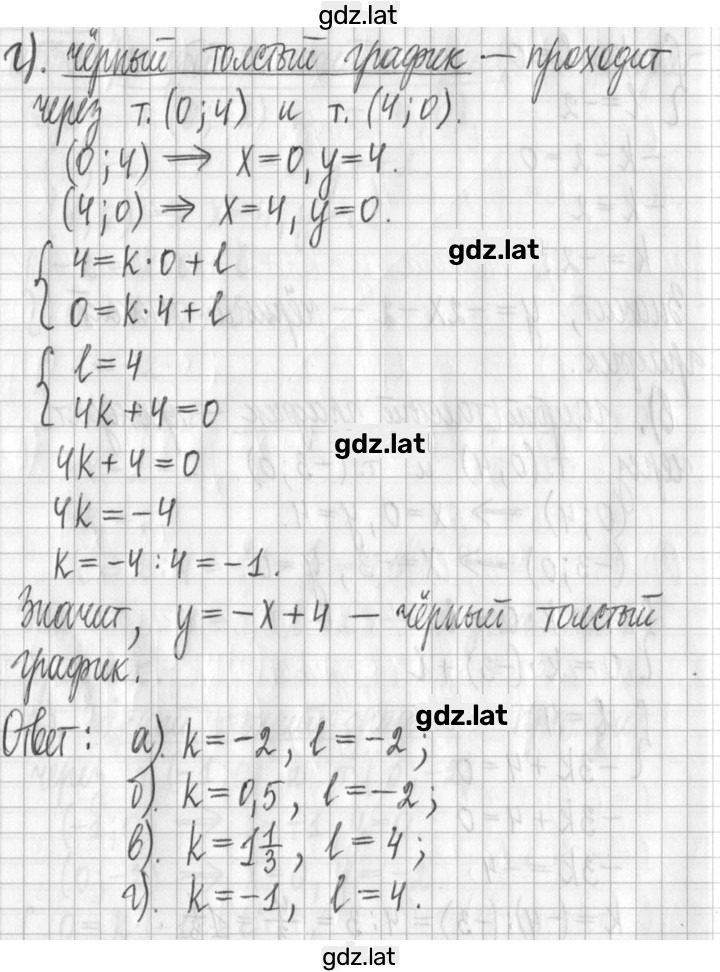 gdz.lat
г). чёрный толстый график — проходит
через т. (0; 4) и т. (4; 0).
(0; 4) ⟹ x = 0, y = 4.
(4; 0) ⟹ x = 4, y = 0.
gdz.lat
{ 4 = k · 0 + l
0 = k · 4 + l
{ l = 4
4k + 4 = 0
gdz.lat
4k + 4 = 0
4k = -4
k = -4 : 4 = -1.
Значит, y = -x + 4 — чёрный толстый
график.
gdz.lat
Ответ: а). k = -2, l = -2;
б). k = 0,5, l = -2;
в). k = 1 1/3, l = 4;
г). k = -1, l = 4.
gdz.lat